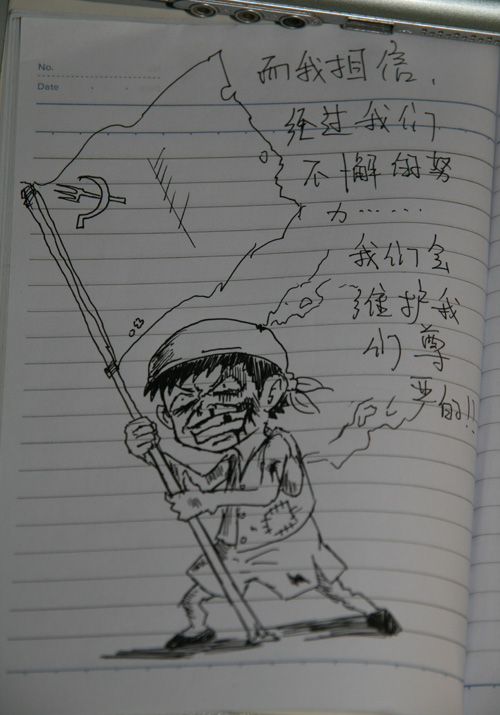 No.
Date
而我相信、
经过我们
不懈的努
力……
我们会
维护我
们尊
严的!!